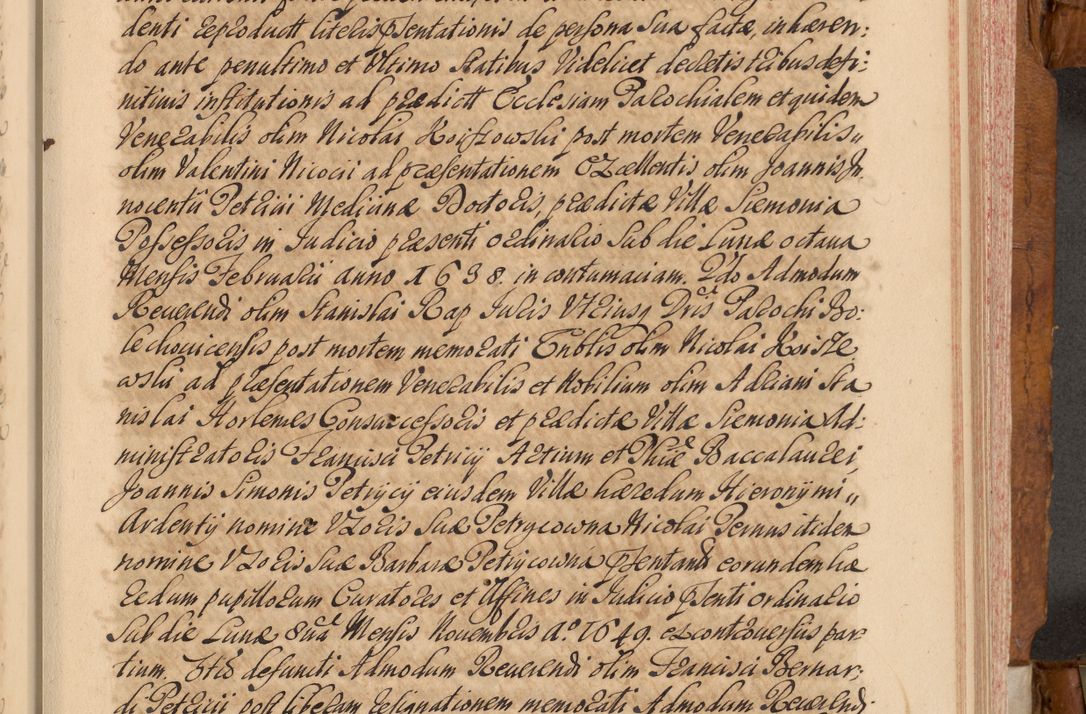 denti reproductt literis pſentationis de perſona Sua factæ, inhæren:
do ante penultimo et Ultimo Statibus Videlicet decretis tribus defi:
nitiuis inſtitutionis ad prædictt Ecclesiam Parochialem et quidem
Venerabilis olim Nicolai Koiſzowski post mortem Venerabilis
olim Valentini Nicocii ad præsentationem Excellentis olim Joannis In
nocentii Petricii Medicinæ Doctoris, prædictæ Villæ Siemonia
Poſseſsoris in Judicio præsenti ordinario Sub die Lunæ octaua
Menſis Februarii anno 1638. in contumaciam. 2do Admodum
Reuerendi olim Stanislai Rap Juris Utriusq Dris Parochi Bo:
lechouicenſis post mortem memorati Enblis olim Nicolai Koisze
wski ad præſentationem Venerabilis et Nobilium olim Adriani Sta
nislai Horlemes Consuccessoris et prædictæ Villæ Siemonia Ad:
miniſtratoris Franciſci Petricij Artium et Phiæ Baccalaurei,
Joannis Simonis Petrycij eiusdem Villæ hæredum Hieronymi
Ardentij nomine Uxoris Suæ Petrycowna Nicolai Pernus itidem
nomine Uxoris Suæ Barbaræ Petrycowna pſentand eorundem hæ
redum pupillorum Curatores et Affines in Judicio pſenti ordinario
Sub die Lunæ 8ua Menſis Nouembris Aº 1649. ex controuerſiis par
tium. 3tio defuncti Admodum Reuerendi olim Franciſci Bernar:
di Petricii post liberam reſignationem memorati Admodum Reuerendi